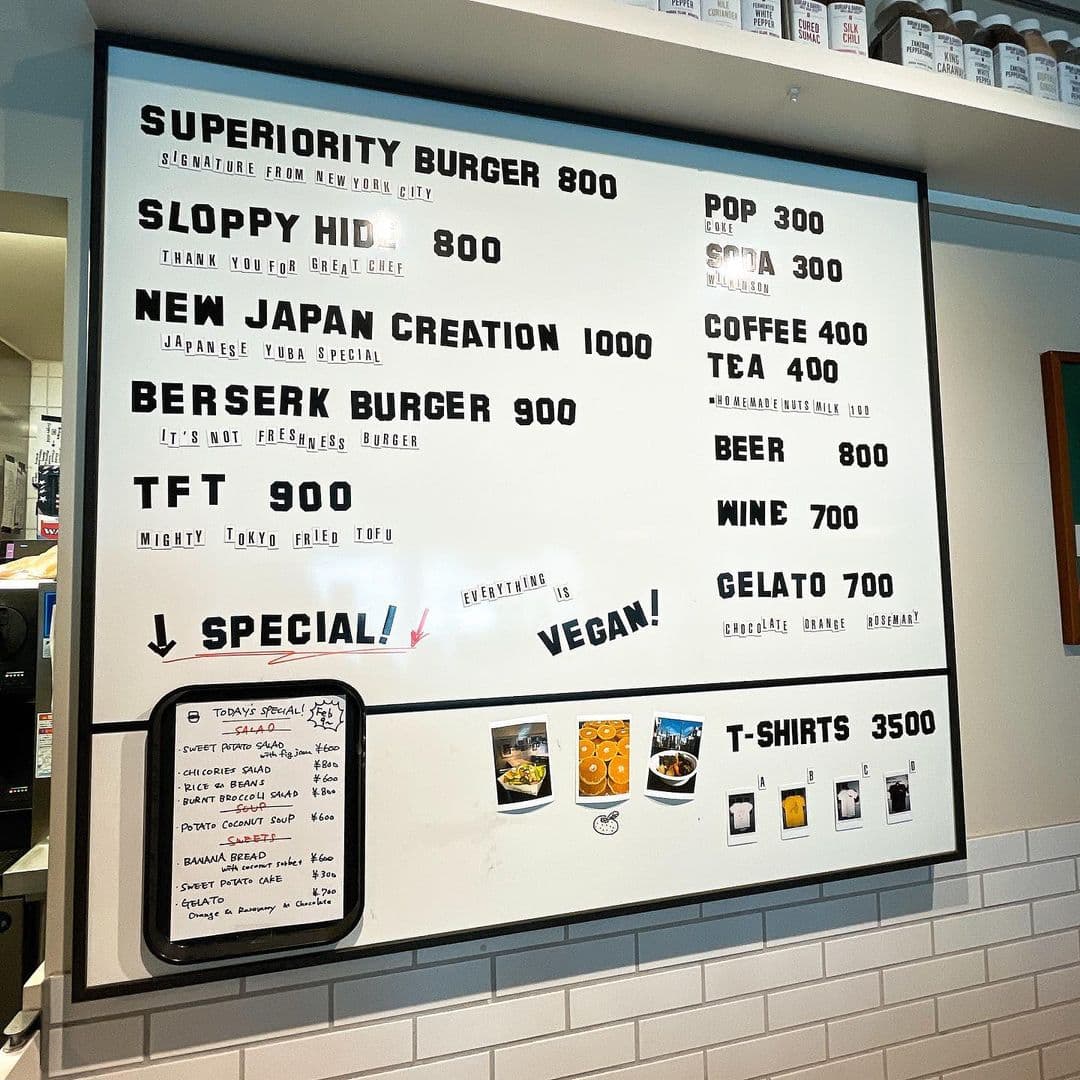 PEPPER
WHITE
PEPPER
CURED
SUMAC
SILK
CHILI
KING
SUPERIORITY BURGER 800
SIGNATURE FROM NEW YORK CITY
SLOPPY 800
THANK YOU FOR GREAT CHEF
NEW JAPAN CREATION 1000
JAPANESE YUBA SPECIAL
BERSERK BURGER 900
IT'S NOT FRESHNESS BURGER
TFT 900
MIGHTY TOKYO FRIED TOFU
↓ SPECIAL!
EVERYTHING IS
VEGAN!
POP 300
COKE
SODA 300
WILKINSON
COFFEE 400
TEA 400
▪HOMEMADE NUTS MILK 100
BEER 800
WINE 700
GELATO 700
CHOCOLATE ORANGE ROSEMARY
TODAY'S SPECIAL!
Feb
SALAD
・SWEET POTATO SALAD ¥600
with fig jam
・CHICORIES SALAD ¥800
・RICE & BEANS ¥600
・BURNT BROCCOLI SALAD ¥800
SOUP
・POTATO COCONUT SOUP ¥600
SWEETS
・BANANA BREAD ¥600
with coconut sorbet
・SWEET POTATO CAKE ¥300
・GELATO ¥700
Orange & Rosemary & Chocolate
T-SHIRTS 3500
A B C D